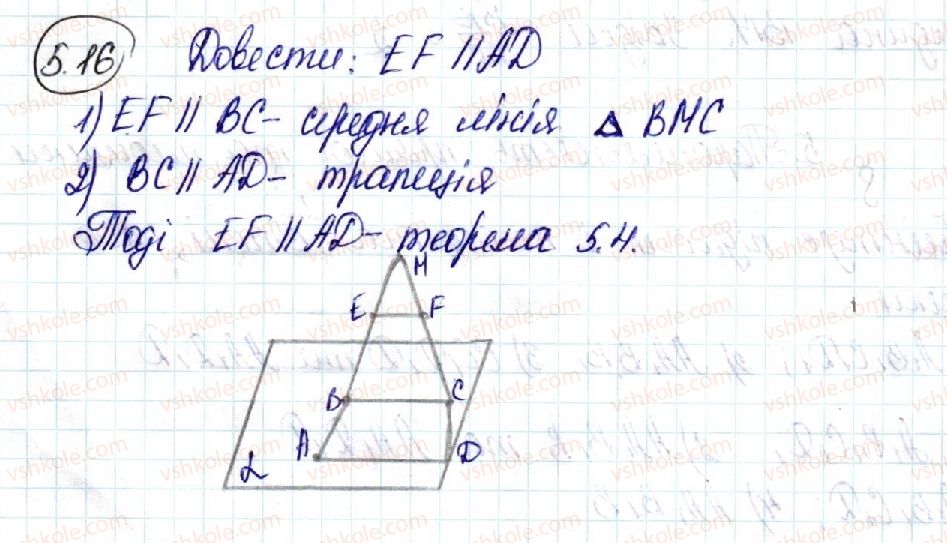 5.16 Довести: EF || AD
1) EF || BC - середня лінія Δ BMC
2) BC || AD - трапеція
Тоді EF || AD - теорема 5.4.
M
E F
B C
A D
α